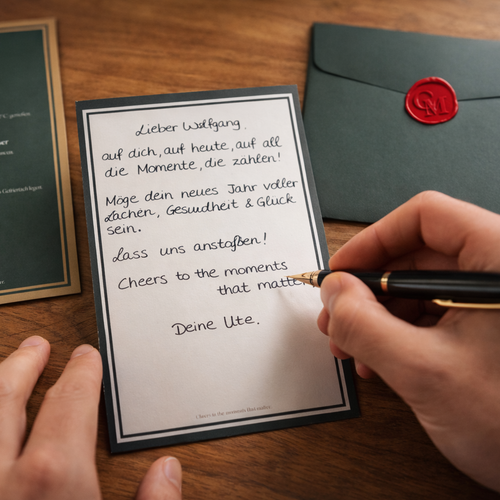 Lieber Wolfgang,
auf dich, auf heute, auf all
die Momente, die zählen!
Möge dein neues Jahr voller
Lachen, Gesundheit & Glück
sein.
Lass uns anstoßen!
Cheers to the moments
that matter
Deine Ute.